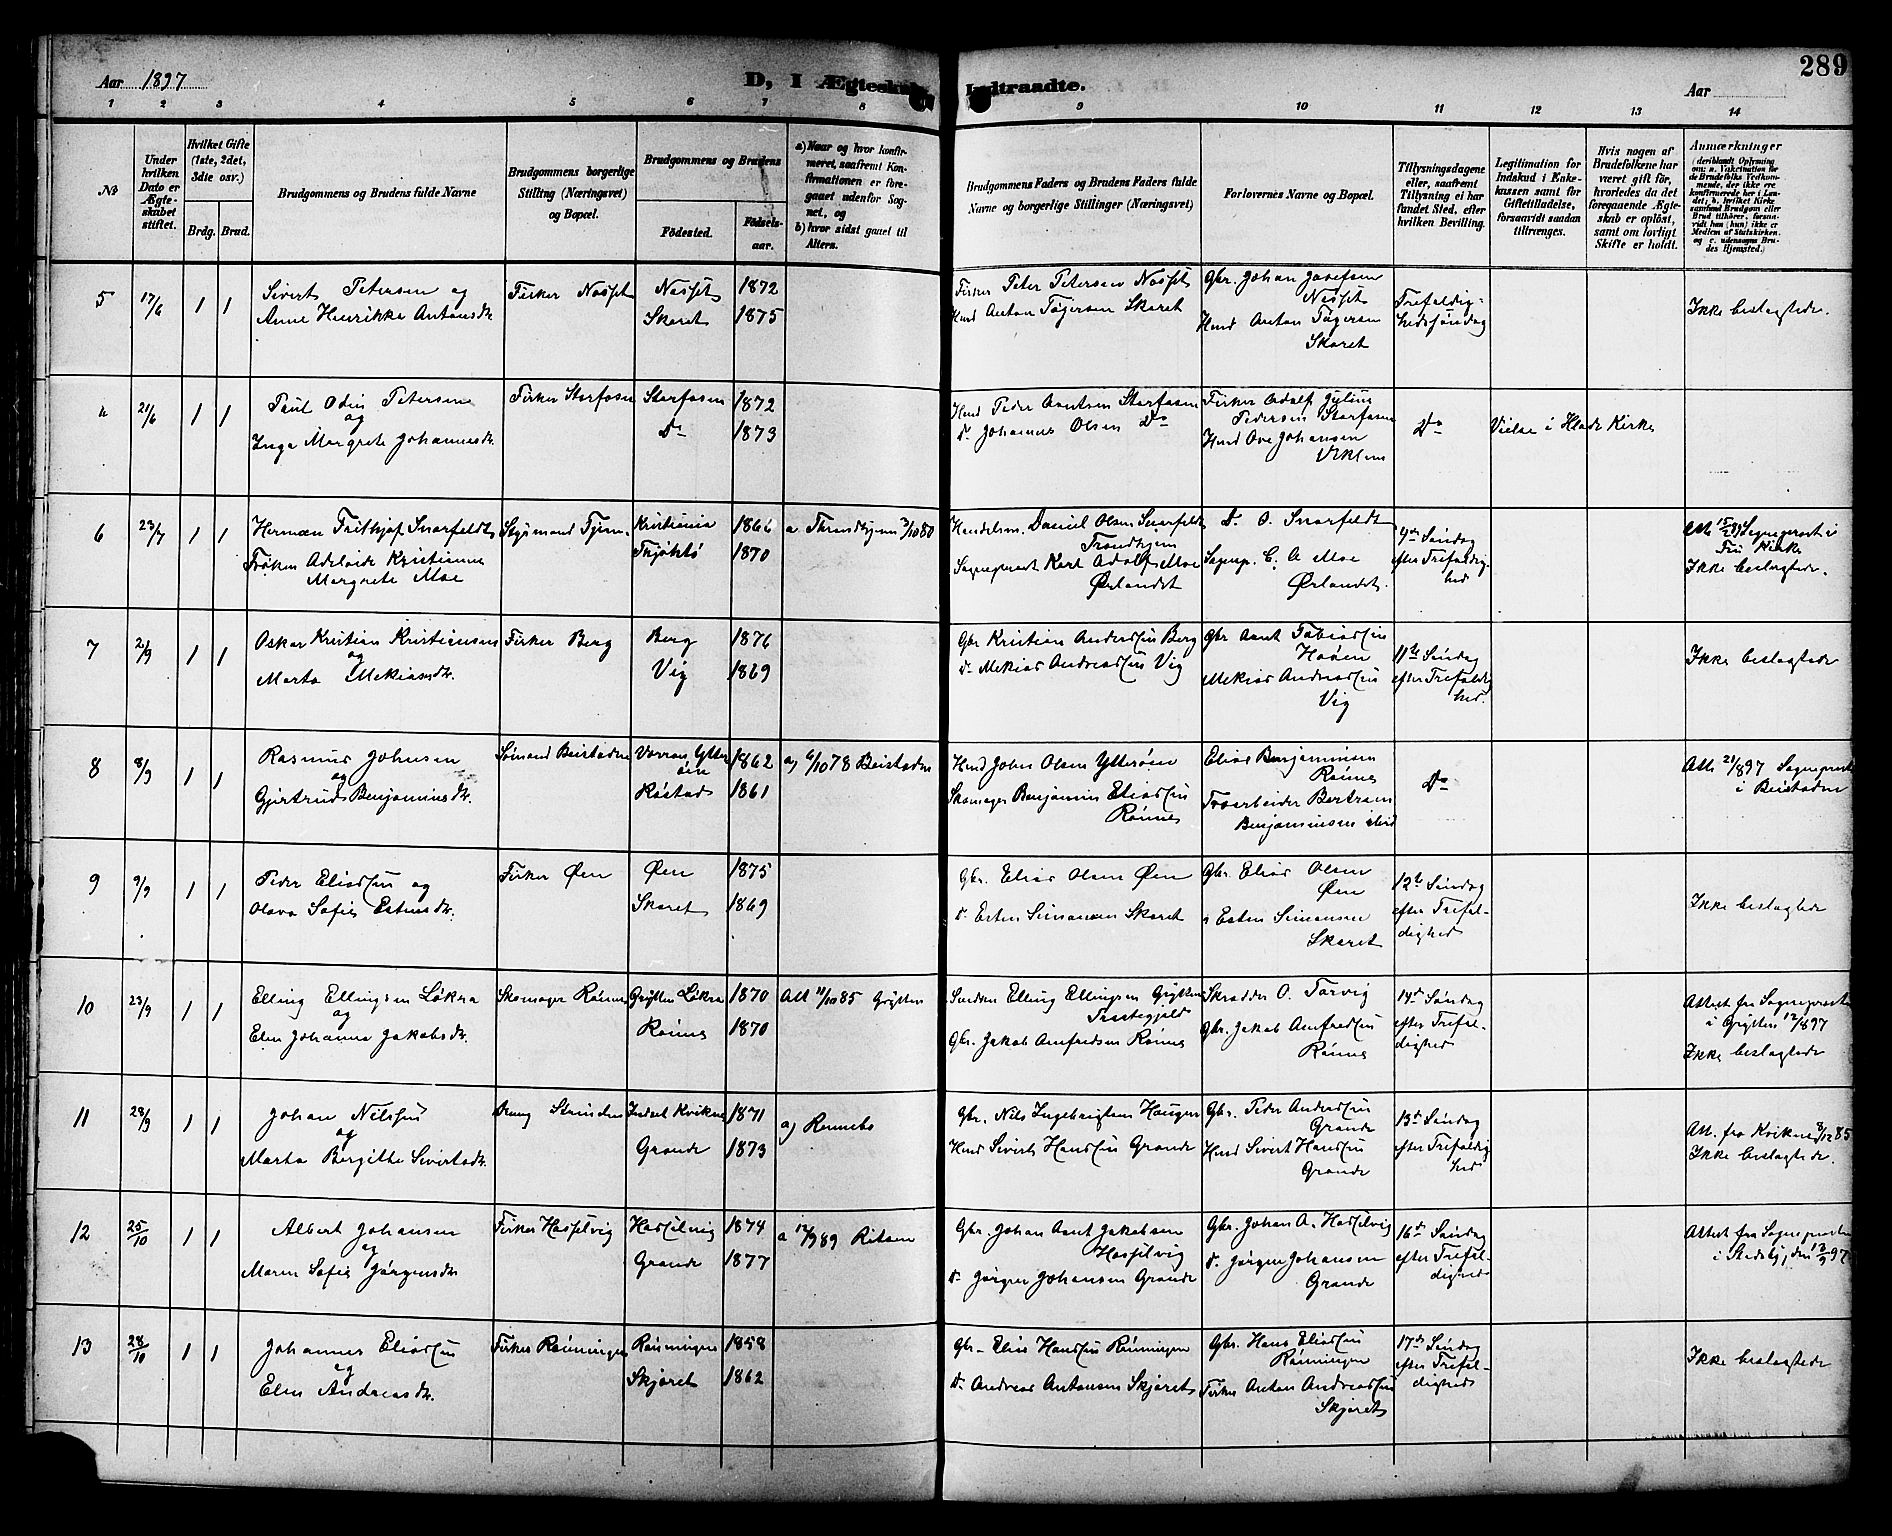 Aar 1897
D, I Ægteskab Indtraadte.
Aar
289
1 2 3 4 5 6 7 8 9 10 11 12 13 14
No
Under hvilken Dato er Ægteskabet stiftet.
Hvilket Gifte (1ste, 2det, 3die osv.)
Brdg. Brud.
Brudgommens og Brudens fulde Navne
Brudgommens borgerlige Stilling (Næringsvei) og Bopæl.
Brudgommens og Brudens
Födested. Födselsaar.
a) Naar og hvor konfirmeret, saafremt Konfirmationen er foregaaet udenfor Sognet, og
b) hvor sidst gaaet til Alters.
Brudgommens Faders og Brudens Faders fulde Navne og borgerlige Stillinger (Næringsvei)
Forlovernes Navne og Bopæl.
Tillysningsdagene eller, saafremt Tillysning ei har fundet Sted, efter hvilken Bevilling.
Legitimation for Indskud i Enkekassen samt for Giftetilladelse, forsaavidt saadan tiltrænges.
Hvis nogen af Brudefolkene har været gift för, hvorledes da det foregaaende Ægteskab er oplöst, samt om lovligt Skifte er holdt.
Anmærkninger
(deriblandt Oplysning om: a. Vakcination for de Brudefolks Vedkommende, der ikke ere konfirmerede her i Landet; b. hvilket Kirkesamfund Brudgom eller Brud tilhörer, forsaavidt han (hun) ikke er Medlem af Statskirken, og c. udensogns Brudes Hjemsted.)
5 17/6 1 1 Sivert Petersen og
Anne Henrikke Antonsdtr.
Fisker Nesset
Nesset 1872
Skaret 1875
Fisker Peter Petersen Nesset
Husmd Anton Tøgersen Skaret
Gbr. Johan Josefsen
Nesset
Husmd Anton Tøgersen
Skaret
Trefoldig-
hedssøndag
Ikke beslægtede.
4 21/6 1 1 Paul Odin Petersen
og
Inga Margrete Johannesdtr.
Fisker Storfosen
Storfosen 1872
Do 1873
Husmd Peder Arntsen Storfosen
Do Johannes Olsen Do
Fisker Adolf Julius
Pedersen Storfosen
Husmd Ove Johansen
Do
Vielse i Hlade Kirke
6 23/7 1 1 Herman Frithjof Snarfeldt
Frøken Adelaide Kristianna
Margrete Moe
Kristiania 1866
Thjøttø 1870
a Throndhjem 3/1080
Daniel Olsen Snarfeldt
Trondhjem
Sogneprest Karl Adolf Moe
Ørlandet
Do O. Snarfeldt
Sognep. C. A Moe
Ørlandet.
4de Søndag
efter Trefoldig-
hed
Ikke beslægtede.
7 2/9 1 1 Oskar Kristian Kristiansen
og
Marta Mekiasdtr.
Fisker Berg
Berg 1876
Vig 1869
Gbr Kristian Andreassen Berg
Do Mekias Andreassen Vig
Gbr Arnt Tobiassen
Mekias Andreassen
Vig
11te Søndag
efter Trefoldig
hed.
Ikke beslægtede
8 8/9 1 1 Rasmus Johnsen
og
Gjertrud Benjaminsdtr.
Sømand Beistaden
Værran Ytter
øen 1862
Røstad 1861
a) 6/1078 Beistaden
Husmd John Olsen Ytterøen
Skomager Benjamin Eliassen
Rønne
Elias Benjaminsen
Rønne
Træarbeider Bertram
Benjaminsen
Do
Att 21/897 Sogneprest
i Beistaden
9 9/9 1 1 Peder Eliassen og
Olava Sofie Estensdtr.
Fisker Øen
Øen 1875
Skaret 1869
Gbr. Elias Olsen Øen
Do Esten Simonsen Skaret
Gbr. Elias Olsen
Øen
Do Esten Simonsen
Skaret
12te Søndag
efter Trefol-
dighed
Ikke beslægtede
10 23/9 1 1 Elling Ellingsen Løkra
og
Elen Johanna Jakobsdtr.
Skomager Rønne
Grytten Løkra 1870
Rønne 1870
Att 11/1085 Grytten
Elling Ellingsen Grytten
Prestegjeld
Gbr. Jakob Arnfredsen Rønne
Skrædder O. Tarvig
Gbr. Jakob Arnfredsen
Rønne
14de Søndag
efter Trefol-
dighed
Attest fra Sognepresten
i Grytten 12/897
Ikke beslægtede
11 28/9 1 1 Johan Nilssen
og
Marta Bergitte Sivertsdtr.
Dreng Strinden
Indset Kvikne 1871
Grande 1873
a) Rennebo
Gbr. Nils Ingebrigtsen Haugen
Husmd Sivert Hanssen Grande
Gbr. Peder Andreassen
Grande
Husmd Sivert Hanssen
Grande
13de Søndag
efter Trefoldig
hed
Att. fra Kvikne 8/1285
Ikke beslægtede.
12 25/10 1 1 Albert Johansen
og
Maren Sofie Jørgensdtr.
Fisker Hasselvig
Hasselvig 1874
Grande 1877
a 12/989 Rissen
Gbr. Johan Arnt Jakobsen
Hasselvig
Do Jørgen Johansen Grande
Gbr. Johan A. Hasselvig
Do Jørgen Johansen
Grande
16de Søndag
efter Trefol-
dighed
Attest fra Sognepresten
13 28/10 1 1 Johannes Eliassen
og
Elen Andreasdtr.
Fisker Rønningen
Rønningen 1858
Skjæret 1862
Gbr Elias Hanssen Rønningen
Do Andreas Antonsen Skjæret
Gbr. Hans Eliassen
Rønningen
Fisker Anton Andreassen
Skjæret
17de Søndag
efter Trefol-
dighed
Ikke beslægtede